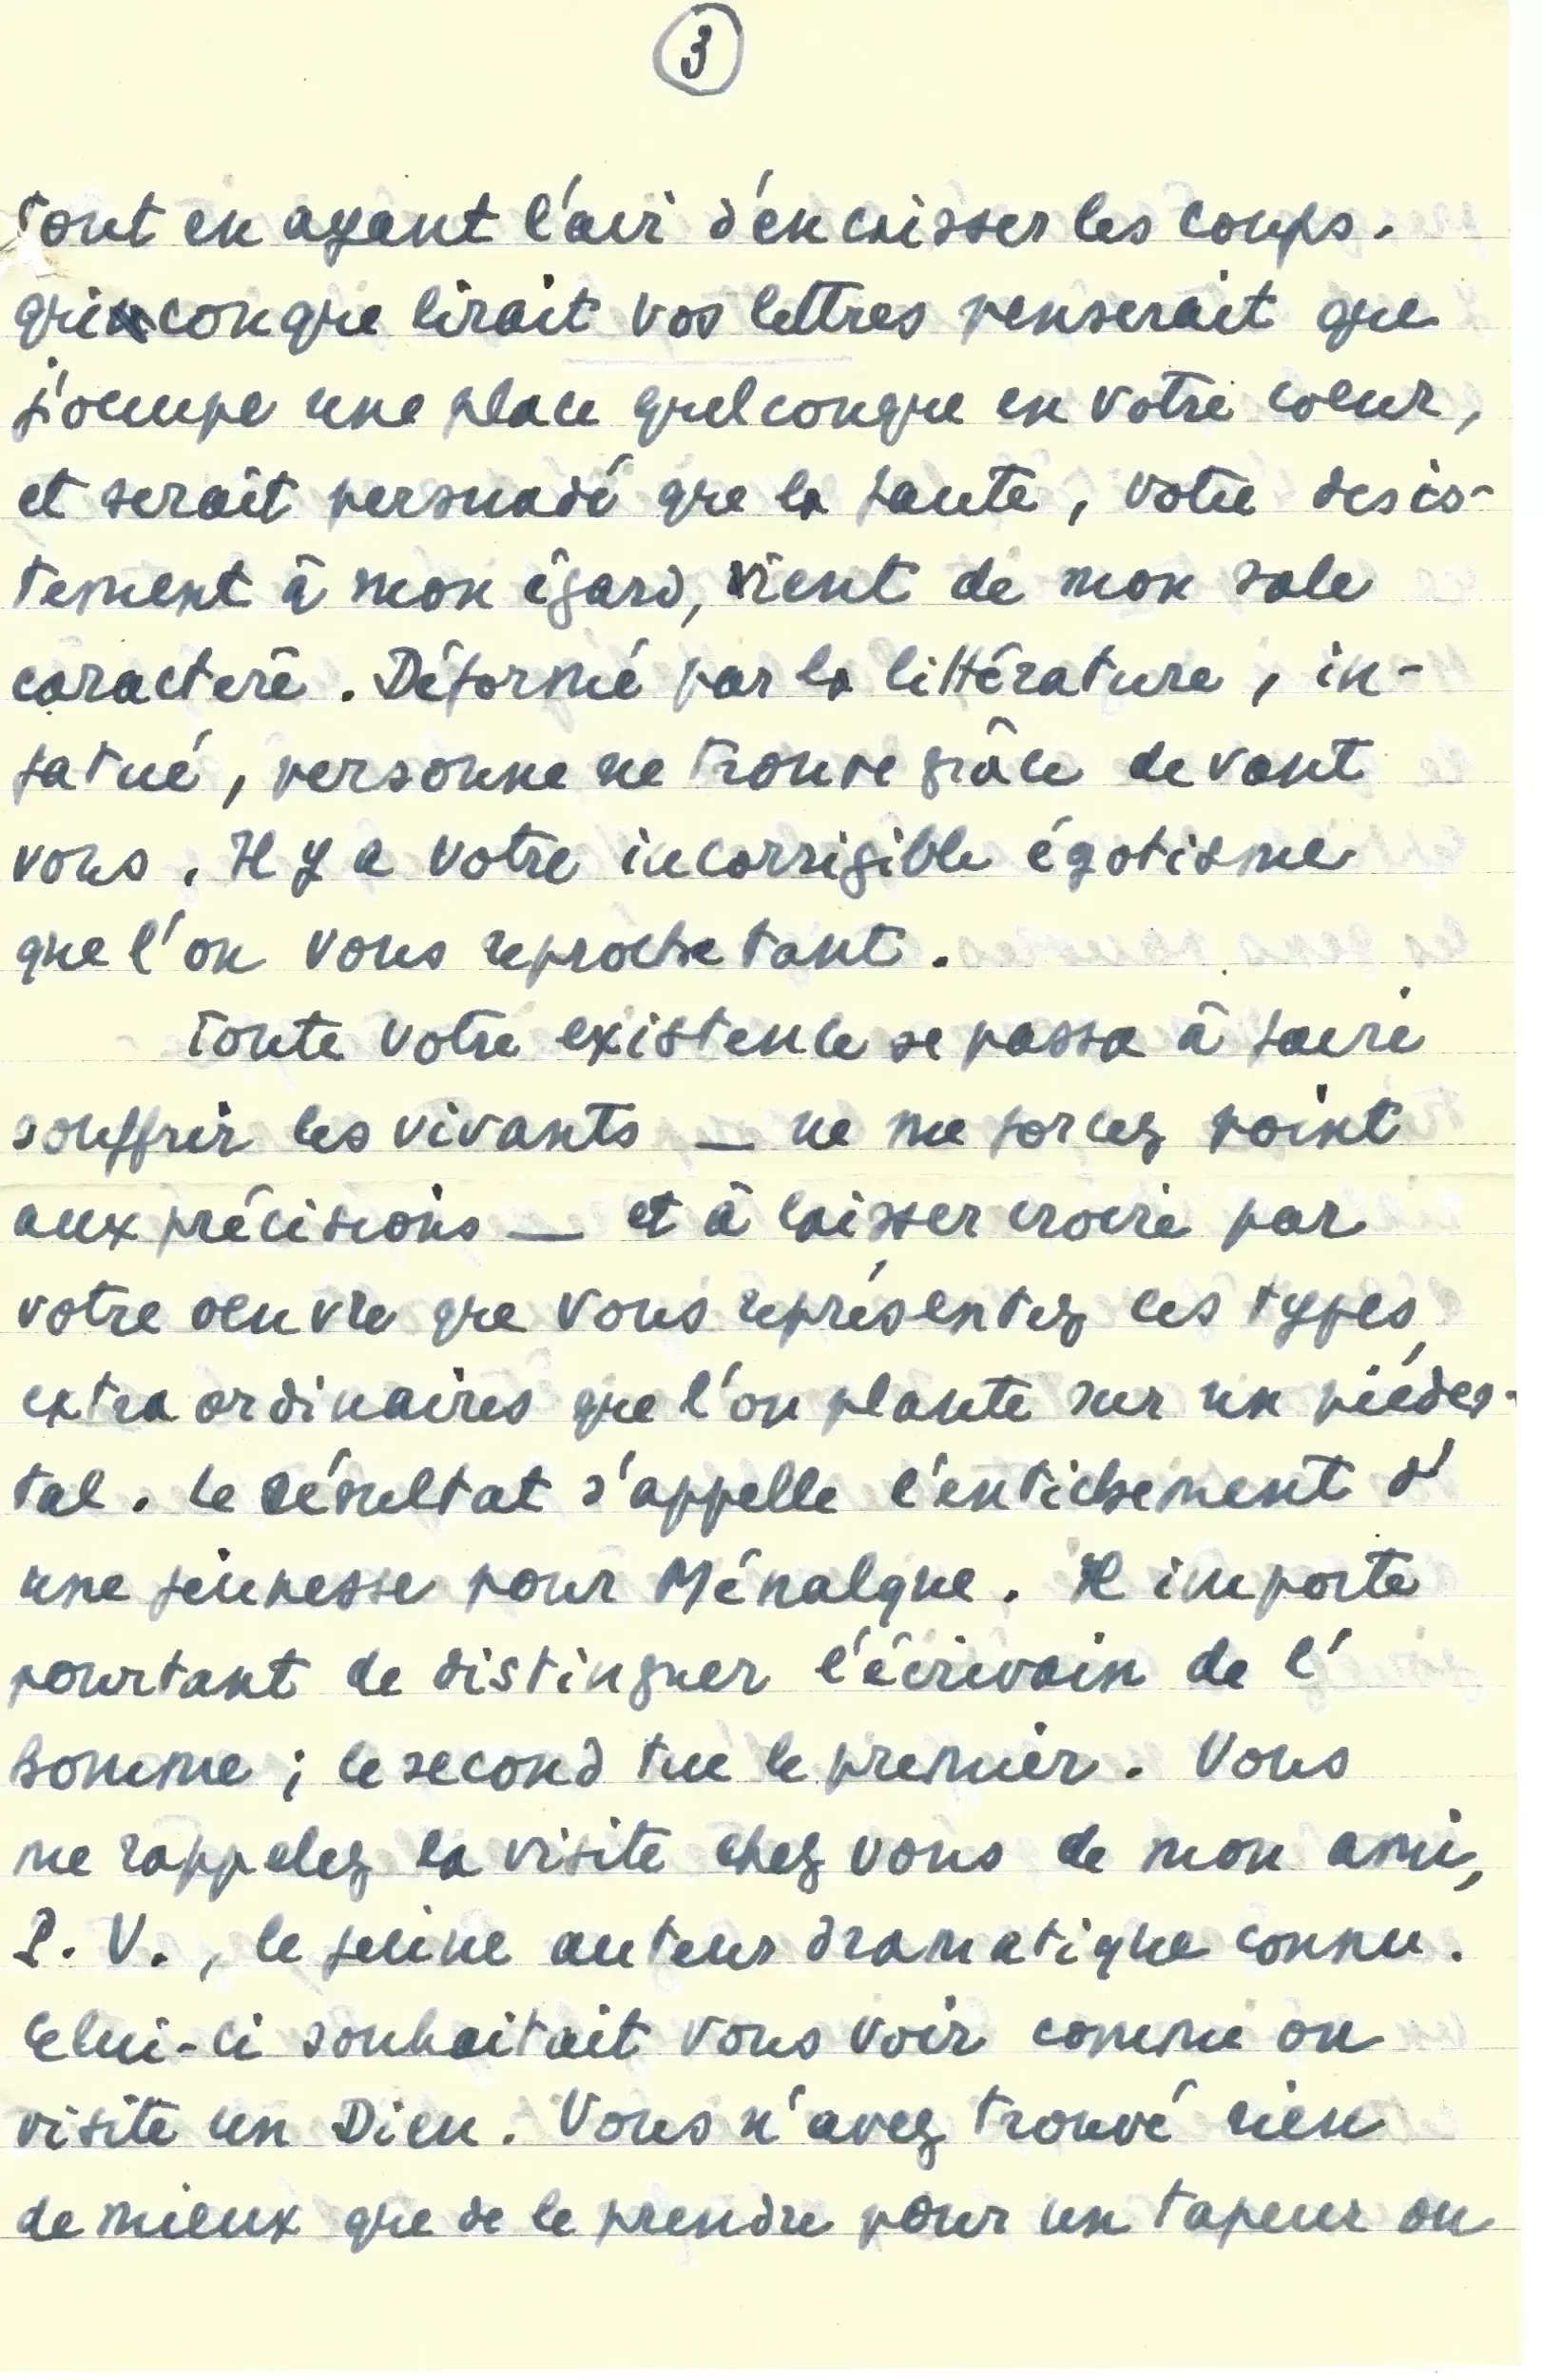 3
Tout en ayant l'air d'encaisser les coups.
quiconque lirait vos lettres penserait que
j'occupe une place quelconque en votre coeur,
et serait persuadé que la faute, votre désis-
tement à mon égard, vient de mon sale
caractère. Déformé par la littérature, in-
fatué, personne ne trouve grâce devant
vous. Il y a votre incorrigible égotisme
que l'on vous reproche tant.
Toute votre existence se passa à faire
souffrir les vivants — ne me forcez point
aux précisions — et à laisser croire par
votre oeuvre que vous représentez ces types
extraordinaires que l'on plante sur un piédes-
tal. Le résultat s'appelle l'entichement d'
une jeunesse pour Ménalque. Il importe
pourtant de distinguer l'écrivain de l'
homme ; le second tue le premier. Vous
me rappelez la visite chez vous de mon ami,
P. V., le jeune auteur dramatique connu.
Celui-ci souhaitait vous voir comme on
visite un Dieu. Vous n'avez trouvé rien
de mieux que de le prendre pour un tapeur ou